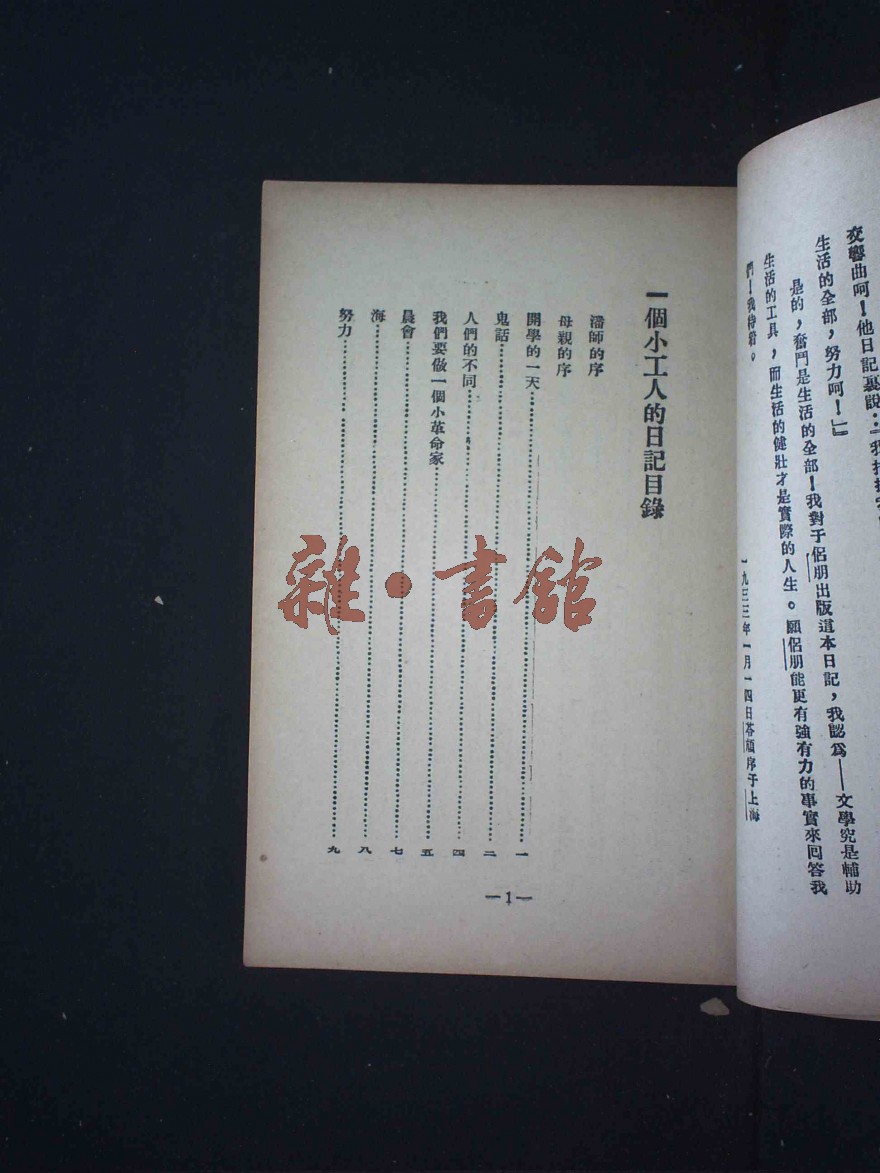 交響曲呵!他日記裏説:「我
生活的全部,努力呵!」
是的,奮鬥是生活的全部!我對于侶朋出版這本日記,我認爲——文學究是輔助
生活的工具,而生活的健壯才是實際的人生。願侶朋能更有強有力的事實來回答我
們!我待着。
一九三三年一月一四日荅頑序于上海
一個小工人的日記目錄
潘師的序
母親的序
開學的一天 一
鬼話 二
人們的不同 四
我們要做一個小革命家 五
晨會 七
海 八
努力 九
—1—
雜·書館